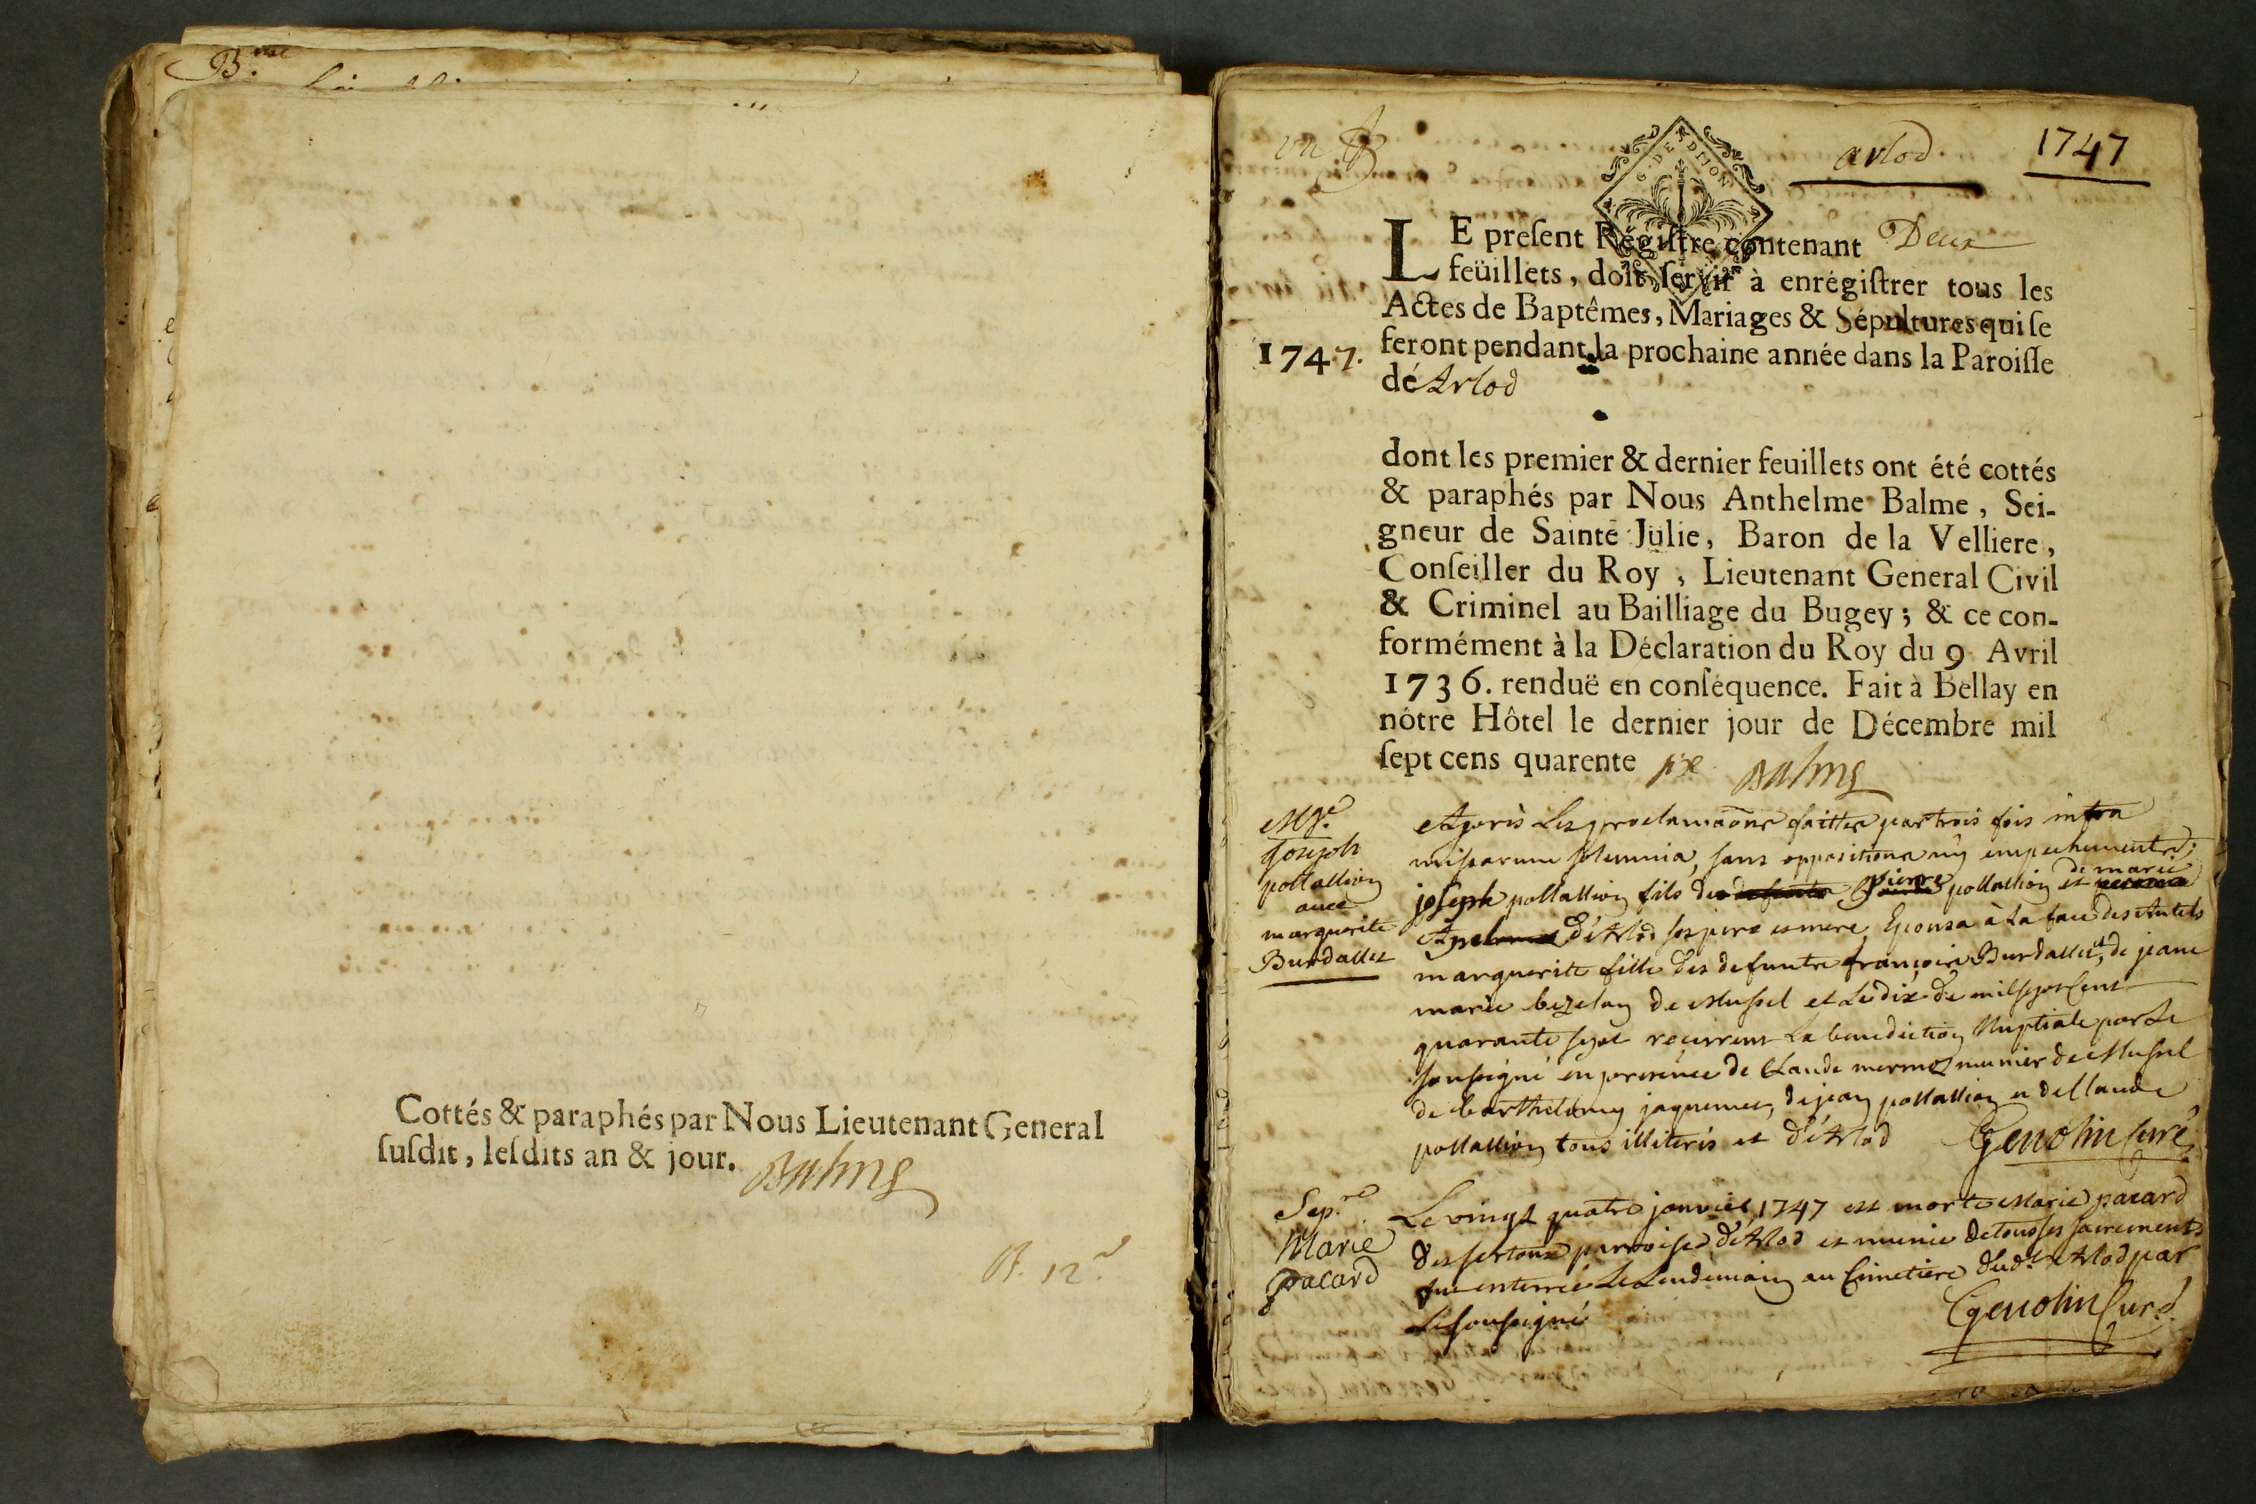 B.me
Cottés & paraphés par Nous Lieutenant General
ſuſdit, leſdits an & jour. Balme
B. 12.d
arlod 1747
G. DE DIJON
LE preſent Régiſtre contenant Deux
feüillets, doit ſervir à enrégiſtrer tous les
Actes de Baptêmes, Mariages & Sépultures qui ſe
1747. feront pendant la prochaine année dans la Paroiſſe
dé Arlod
dont les premier & dernier feuillets ont été cottés
& paraphés par Nous Anthelme Balme, Sei-
gneur de Sainte Julie, Baron de la Velliere,
Conſeiller du Roy, Lieutenant General Civil
& Criminel au Bailliage du Bugey; & ce con-
formément à la Déclaration du Roy du 9 Avril
1736. renduë en conſéquence. Fait à Bellay en
nôtre Hôtel le dernier jour de Décembre mil
ſept cens quarente Balme
Mge.
Joseph
pollallion
avec
marguerite
Burdallet
Après Les proclamaons faittes par trois fois infra
missarum solemnia, sans oppositions ny empechements,
joseph pollallion fils de pierre pollallion et de marie
d'Arlod ses pere et mere Epousa à La face des Autels
marguerite fille des defunts françois Burdallet, et de jeane
marie de Mussel et Le dix de mil sept Cent
quarante sept reçurent La benediction Nuptiale par Le
soussigné en presence de Claude mermet munier de Mussel
de barthelemy jaquemet, de jean pollallion et de Claude
pollallion tous illiteris et d'Arlod Genolin Curé
Sep.re
Marie
pacard
Le vingt quatre janvier 1747 est morte Marie pacard
des sertoux parroisse d'Arlod et munie de tous ses sacrements
fut enterrée Le Lendemain au Cimetiere dud.t Arlod par
Le soussigné Genolin Curé